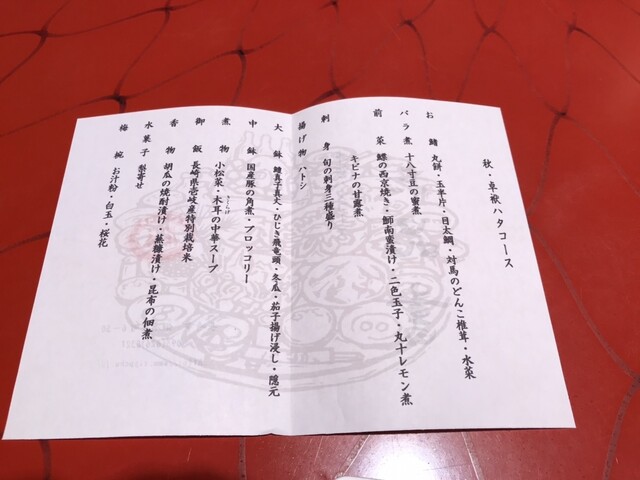 秋・卓袱ハタコース
お鰭 丸餅・玉半片・目太鯛・対馬のどんこ椎茸・水菜
バラ煮 十八寸豆の蜜煮
前菜 鰹の西京焼き・鰤南蛮漬け・二色玉子・丸十レモン煮
キビナの甘露煮
刺身 旬の刺身三種盛り
揚げ物 ハトシ
大鉢 鱧真子真丈・ひじき飛竜頭・冬瓜・茄子揚げ浸し・隠元
中鉢 国産豚の角煮・ブロッコリー
煮物 小松菜・木耳の中華スープ
きくらげ
御飯 長崎県壱岐産特別栽培米
香物 胡瓜の焼酎漬け・蕪糠漬け・昆布の佃煮
水菓子 梨寄せ
梅椀 お汁粉・白玉・桜花